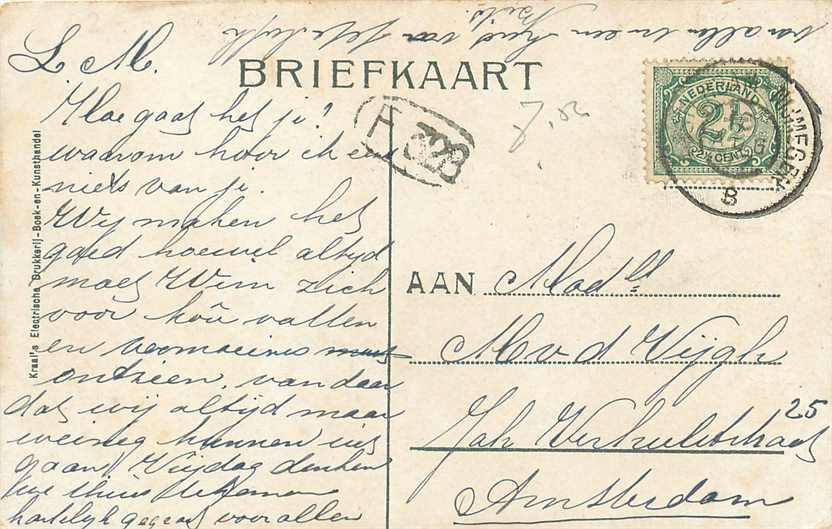 BRIEFKAART
L M.
Hoe gaat het je?
waarom hoor ik
niets van je.
Wij maken het
goed hoewel altijd
moet Wim zich
voor kou vallen
en
ontzien, van daar
dat wij altijd maar
weinig kunnen uit
gaan. Vrijdag denken
we thuis te komen
hartelijk gegroet voor allen
van allen en een van
P 328
7,50
NEDERLAND
2½
2½ CENT
NIJMEGEN
B
AAN Mad ll
M v d Vijgh
Joh Verhulststraat 25
Amsterdam
Kraal's Electrische Drukkerij-Boek-en-Kunsthandel